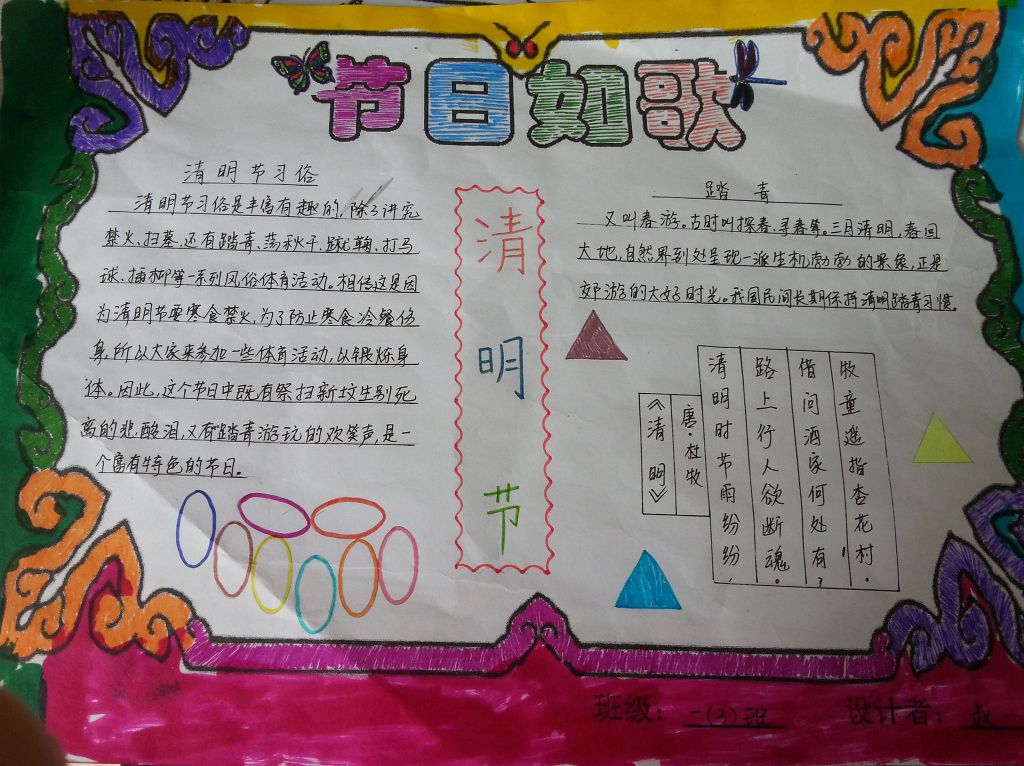 节日如歌
清明节习俗
清明节习俗是丰富有趣的,除了讲究
禁火、扫墓,还有踏青、荡秋千、蹴鞠、打马
球、插柳等一系列风俗体育活动。相传这是因
为清明节要寒食禁火,为了防止寒食冷餐伤
身,所以大家来参加一些体育活动,以锻炼身
体。因此,这个节日中既有祭扫新坟生别死
离的悲酸泪,又有踏青游玩的欢笑声,是一
个富有特色的节日。
清明节
踏青
又叫春游。古时叫探春、寻春等。三月清明,春回
大地,自然界到处呈现一派生机勃勃的景象,正是
郊游的大好时光。我国民间长期保持清明踏青习惯。
《清明》
唐·杜牧
清明时节雨纷纷,
路上行人欲断魂。
借问酒家何处有?
牧童遥指杏花村。
班级:一(3)班
设计者:赵一